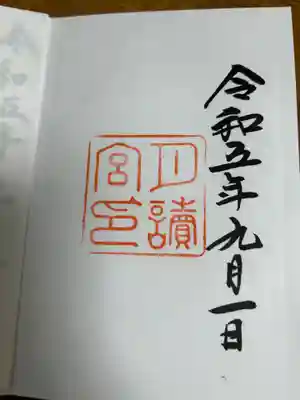 令和五年九月一日
月讀
宮印